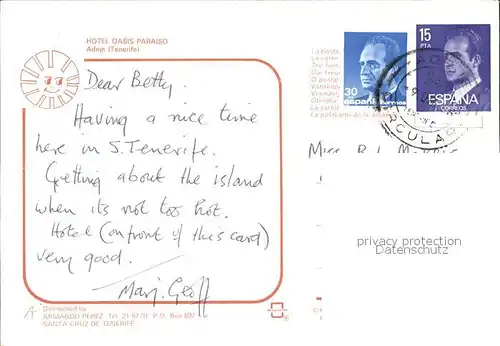 HOTEL OASIS PARAISO
Adeje (Tenerife)
Dear Betty,
Having a nice time
here in S. Tenerife.
Getting about the island
when its not too hot.
Hotel (on front of this card)
very good.
Marj. Geoff
Distributed by
ARMANDO PEREZ Tel. 21 67 01 P.O. Box 892
SANTA CRUZ DE TENERIFE
30
españa correos
15
PTA
ESPAÑA
CORREOS
CIRCULAR
privacy protection
Datenschutz